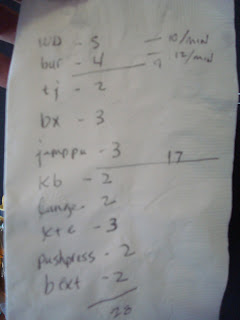 WO - 5 — 10/min
bur - 4 — 12/min
9
tj - 2
bx - 3
jumppu - 3
17
kb - 2
lunge - 2
xtc - 3
pushpress - 2
bext - 2
28